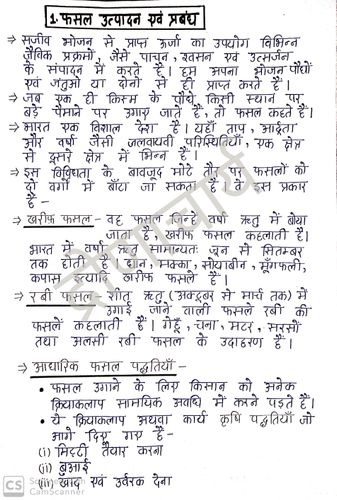 1. फसल उत्पादन एवं प्रबंध
→ सजीव भोजन से प्राप्त ऊर्जा का उपयोग विभिन्न
जैविक प्रक्रमों, जैसे पाचन, श्वसन एवं उत्सर्जन
के संपादन में करते हैं। हम अपना भोजन पौधों
एवं जंतुओं या दोनों से ही प्राप्त करते हैं।
→ जब एक ही किस्म के पौधे किसी स्थान पर
बड़े पैमाने पर उगाए जाते हैं, तो फसल कहते हैं।
→ भारत एक विशाल देश है। यहाँ ताप, आर्द्रता
और वर्षा जैसी जलवायवी परिस्थितियाँ, एक क्षेत्र
से दूसरे क्षेत्र में भिन्न हैं।
→ इस विविधता के बावजूद मोटे तौर पर फसलों को
दो वर्गों में बाँटा जा सकता है। वे इस प्रकार
हैं -
→ खरीफ़ फसल - वह फसल जिन्हें वर्षा ऋतु में बोया
जाता है, खरीफ़ फसल कहलाती है।
भारत में वर्षा ऋतु सामान्यतः जून से सितम्बर
तक होती है। धान, मक्का, सोयाबीन, मूँगफली,
कपास इत्यादि खरीफ फसलें हैं।
→ रबी फसल - शीत ऋतु (अक्टूबर से मार्च तक) में
उगाई जाने वाली फसलें रबी की
फसलें कहलाती हैं। गेहूँ, चना, मटर, सरसों
तथा अलसी रबी फसल के उदाहरण हैं।
→ आधारिक फसल पद्धतियाँ -
• फसल उगाने के लिए किसान को अनेक
क्रियाकलाप सामयिक अवधि में करने पड़ते हैं।
• ये क्रियाकलाप अथवा कार्य कृषि पद्धतियाँ जो
आगे दिए गए हैं -
(i) मिट्टी तैयार करना
(ii) बुआई
(iii) खाद एवं उर्वरक देना
CS
CamScanner